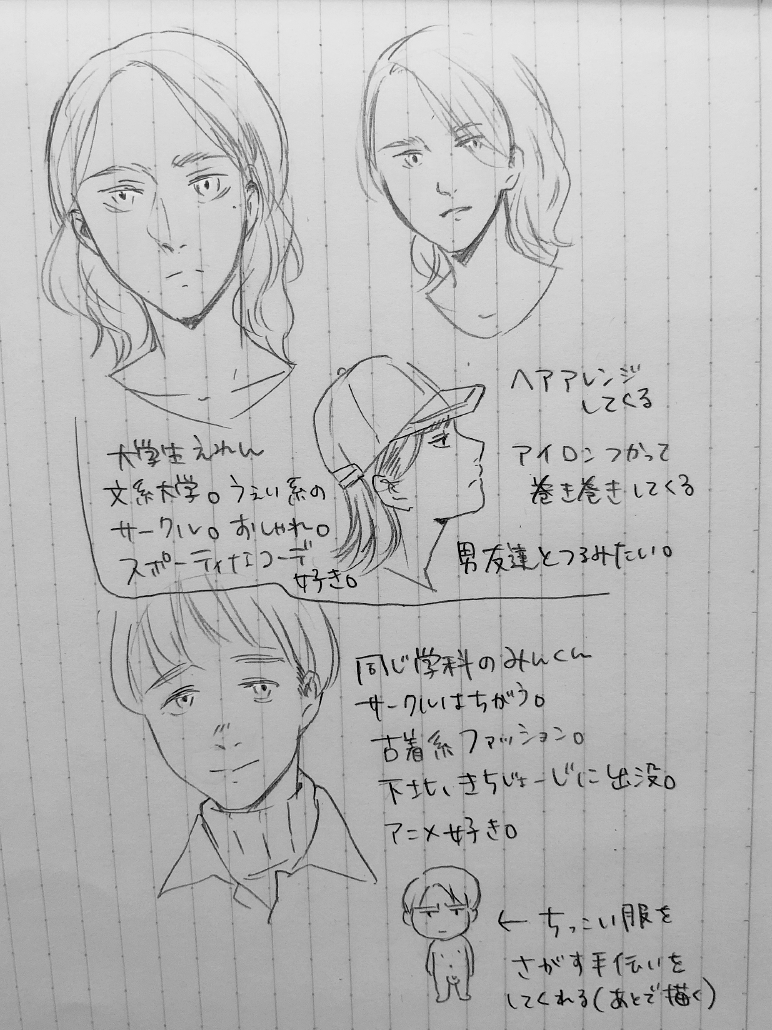 ヘアアレンジ
してくる
アイロンつかって
巻き巻きしてくる
男友達とつるみたい。
大学生えれん
文系大学。うぇい系の
サークル。おしゃれ。
スポーティなコーデ
好き。
同じ学科のみんくん
サークルはちがう。
古着系ファッション。
下北、きちじょーじに出没。
アニメ好き。
← ちっこい服を
さがす手伝いを
してくれる(あとで描く)